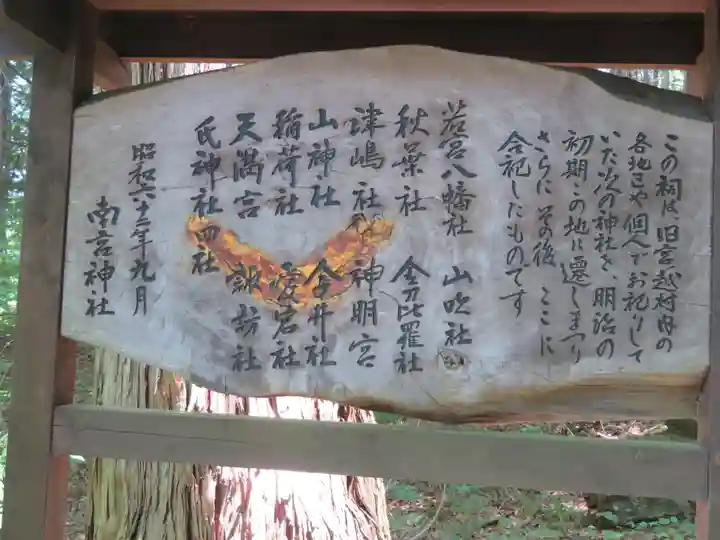 この祠は、旧宮越村内の
各地区や個人でお祀りして
いた次の神社を、明治の
初期この地に遷しまつり
さらに、その後、ここに
合祀したものです
若宮八幡社 山吹社
秋葉社 金刀比羅社
津嶋社 神明宮
山神社 今井社
稲荷社 愛宕社
天満宮 諏訪社
氏神社四社
昭和六十三年九月
南宮神社